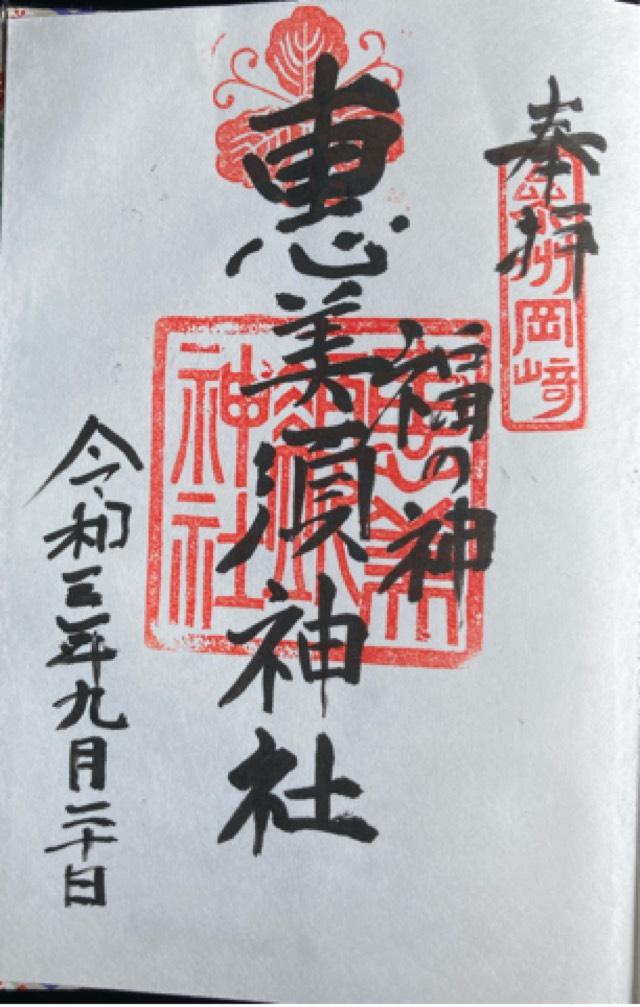 奉拝
州岡﨑
福の神
恵美須神社
恵美
須
神社
令和三年九月二十日